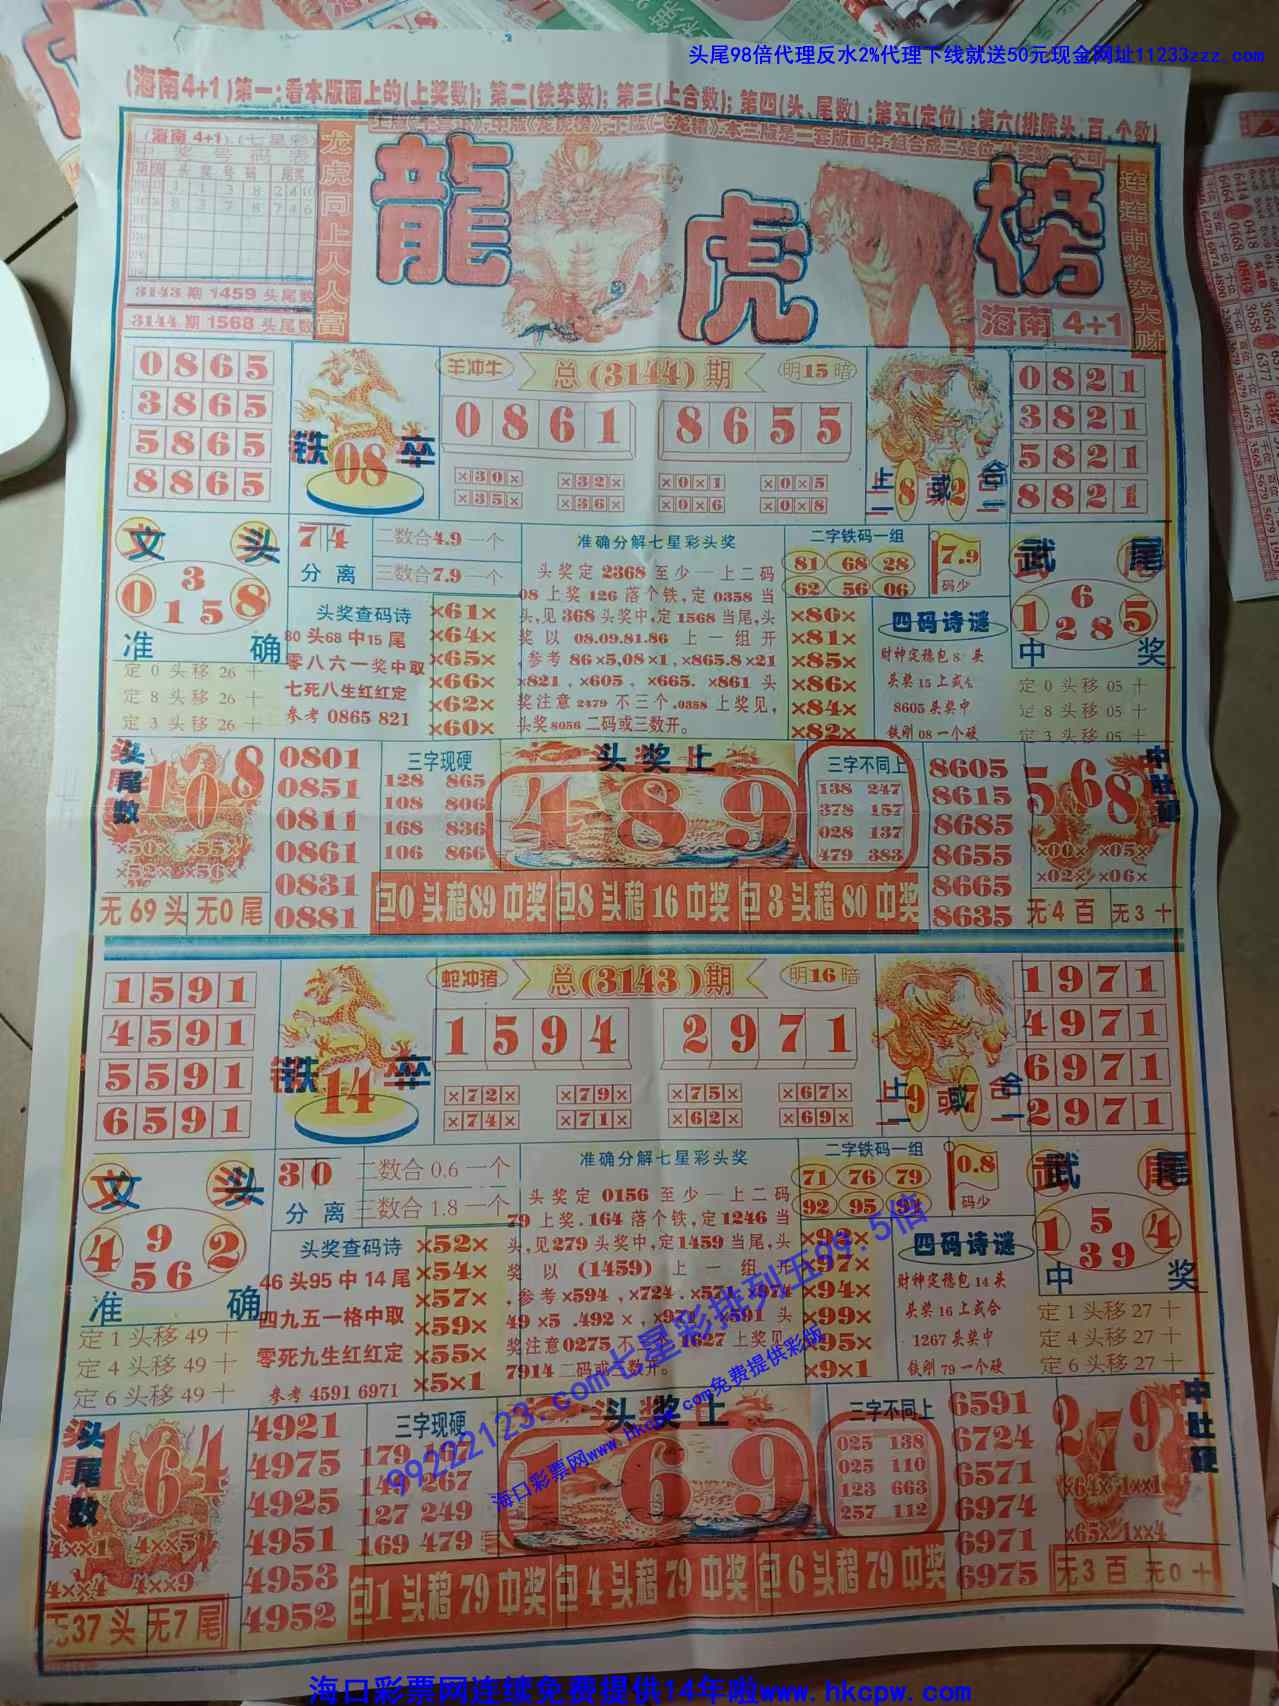 头尾98倍代理反水2%代理下线就送50元现金网址11233zzz.com
(海南4+1)第一:看本版面上的(上奖数);第二(铁卒数);第三(上合数);第四(头、尾数);第五(定位);第六(排除头,百,个数)
(海南4+1).(七星彩)
中奖号码表
龙虎同上人人富
龍虎榜
海南 4+1
连连中奖发大财
3143期1459头尾数
3144期1568头尾数
0865
3865
5865
8865
铁 08 卒
羊冲牛
总(3144)期
明15暗
0861 8655
×30× ×32× ×0×1 ×0×5
×35× ×36× ×0×6 ×0×8
上二 8 或 2 合二
0821
3821
5821
8821
文 头
3
0 1 5 8
准 确
定 0 头移 26 十
定 8 头移 26 十
定 3 头移 26 十
7 4
分 离
二数合4.9一个
三数合7.9一个
头奖查码诗
80 头68 中15 尾
零八六一奖中取
七死八生红红定
参考 0865 821
×61×
×64×
×65×
×66×
×62×
×60×
准确分解七星彩头奖
头奖定 2368 至少一上二码
08 上奖 126 落个铁,定 0358 当
头,见 368 头奖中,定 1568 当尾,头
奖以 08.09.81.86 上一组开
,参考 86×5,08×1,×865.8×21
×821,×605,×665.×861 头
奖注意 2479 不三个,0358 上奖见,
头奖 8056 二码或三数开。
二字铁码一组
81 68 28
62 56 06
7.9
码少
×86×
×81×
×85×
×86×
×84×
×82×
四码诗谜
财神定稳包 8 头
头奖 15 上或
8605 头奖中
铁刚 08 一个硬
武 尾
6
1 2 8 5
中 奖
定 0 头移 05 十
定 8 头移 05 十
定 3 头移 05 十
头尾数
108
×50× ×55×
×52× ×56×
无69头 无0尾
0801
0851
0811
0861
0831
0881
三字现硬
128 865
108 806
168 836
106 866
头奖止
489
三字不同上
138 247
378 157
028 137
479 383
包0头稳89中奖 包8头稳16中奖 包3头稳80中奖
8605
8615
8685
8655
8665
8635
568
中肚硬
×00× ×05×
×02× ×06×
无4百 无3十
1591
4591
5591
6591
铁 14 卒
蛇冲猪
总(3143)期
明16暗
1594 2971
×72× ×79× ×75× ×67×
×74× ×71× ×62× ×69×
上一 9 或 7 合一
1971
4971
6971
2971
文 头
9
4 5 6 2
准 确
定 1 头移 49 十
定 4 头移 49 十
定 6 头移 49 十
3 0
分 离
二数合 0.6 一个
三数合 1.8 一个
头奖查码诗
46 头95 中 14 尾
四九五一格中取
零死九生红红定
参考 4591 6971
×52×
×54×
×57×
×59×
×55×
×5×1
准确分解七星彩头奖
头奖定 0156 至少一上二码
79 上奖.164 落个铁,定1246 当
头,见 279 头奖中,定1459 当尾,头
奖以 (1459) 上一组开
,参考 ×594,×724.
49 ×5 .492 ×
奖注意 0275 不三个 1627 上奖见
7914 二码或三数开。
二字铁码一组
71 76 79
92 95 94
0.8
码少
×93×
×97×
×94×
×99×
×95×
×9×1
四码诗谜
财神定稳包 14 头
头奖 16 上或合
1267 头奖中
铁刚 79 一个硬
武 尾
5
1 3 9 4
中 奖
定 1 头移 27 十
定 4 头移 27 十
定 6 头移 27 十
头尾数
164
4××1 4××5
4××9
无37头 无7尾
4921
4975
4925
4951
4953
4952
三字现硬
127 249
169 479
头奖止
169
三字不同上
025 138
025 110
123 663
257 112
包1头稳79中奖 包4头稳79中奖 包6头稳79中奖
6591
6724
6571
6974
6971
6975
279
中肚硬
×64× 1××1
×65× 1××4
无3百 无0十
99222123.com七星彩排列五99.5倍
海口彩票网www.hkcpw.com免费提供彩版
海口彩票网连续免费提供14年啦www.hkcpw.com